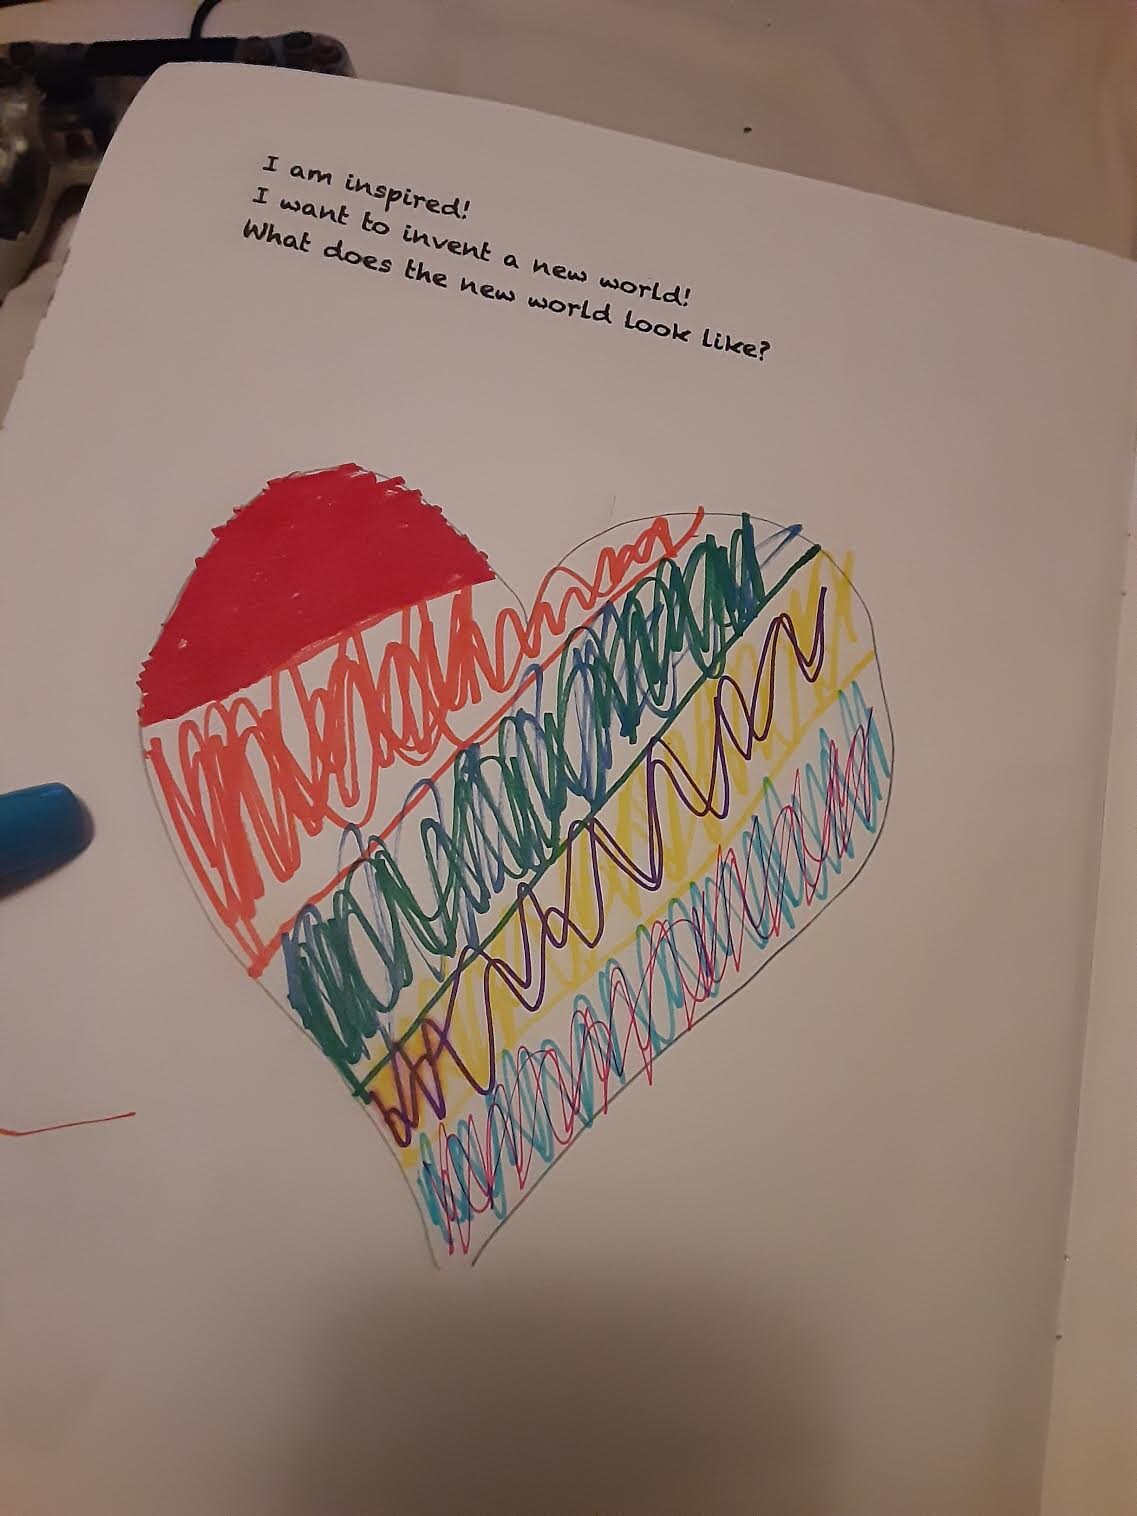 I am inspired!
I want to invent a new world!
What does the new world look like?